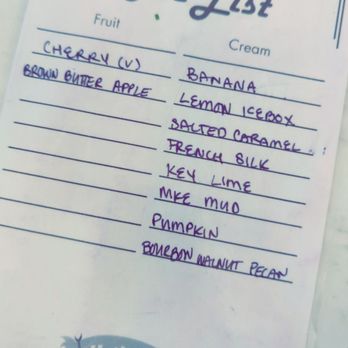 List
Fruit
Cream
CHERRY (V)
BROWN BUTTER APPLE
BANANA
LEMON ICEBOX
SALTED CARAMEL
FRENCH SILK
KEY LIME
MKE MUD
PUMPKIN
BOURBON WALNUT PECAN